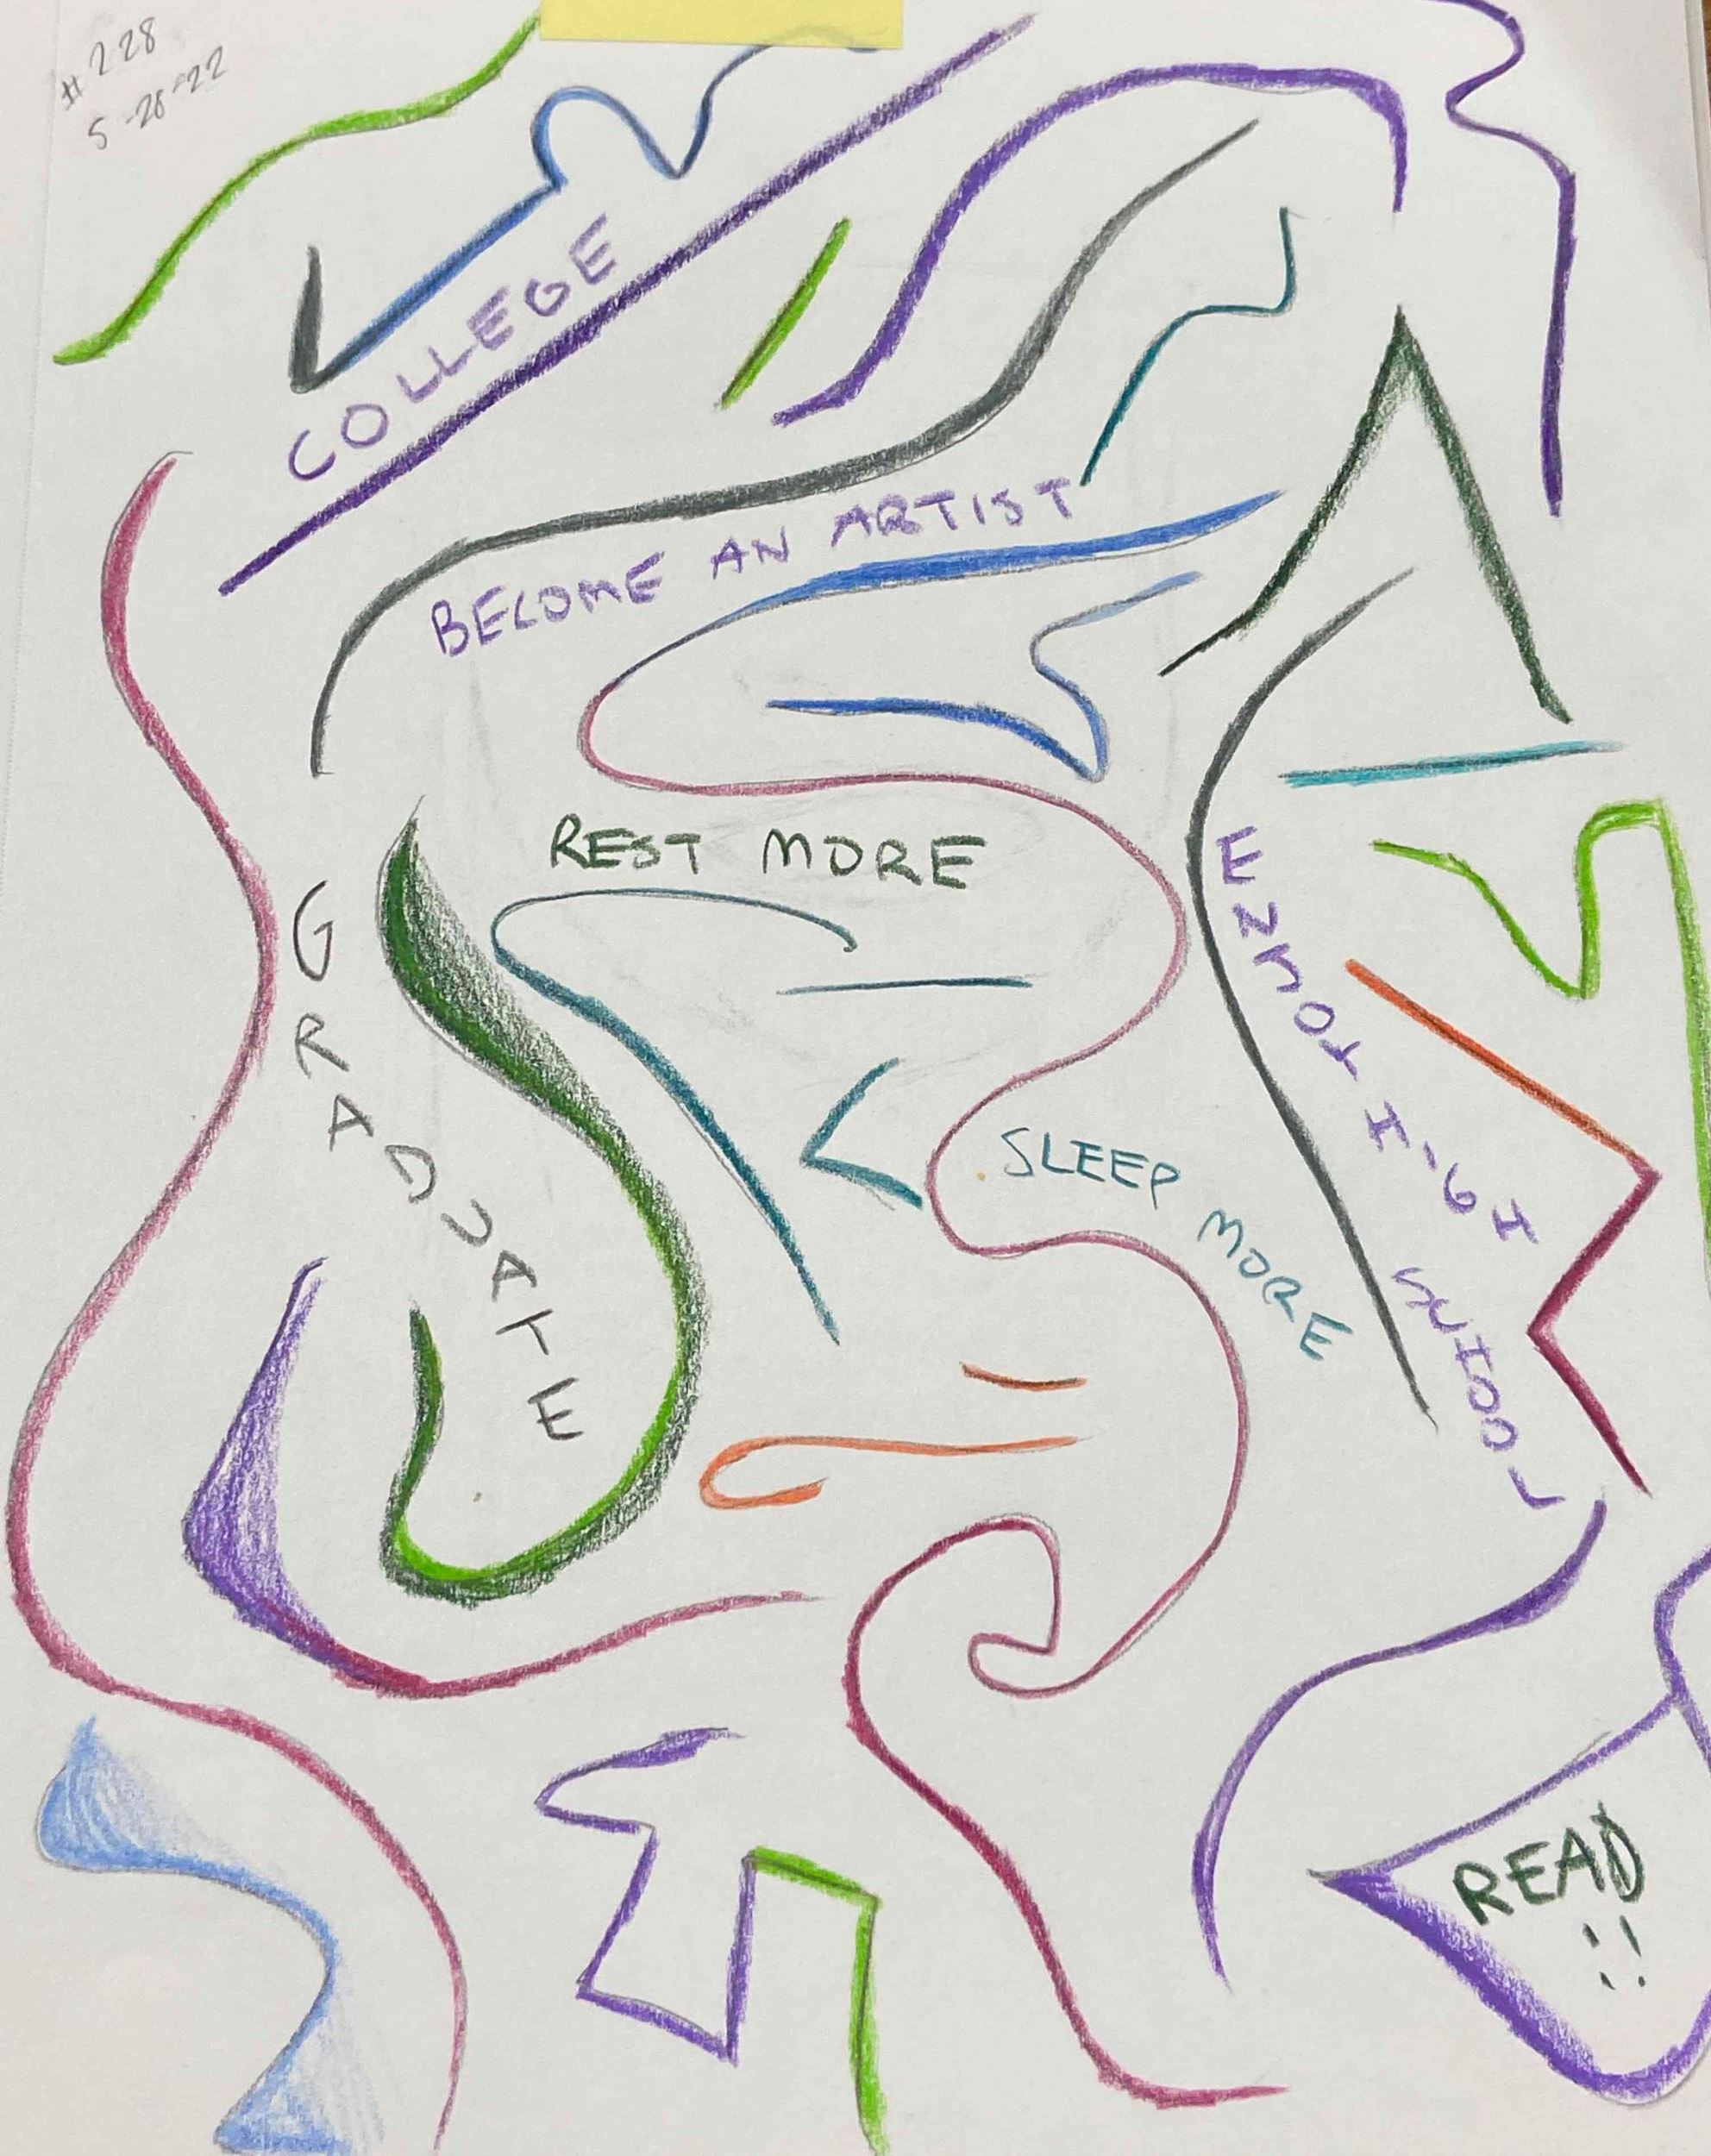 #228
5-28-22
COLLEGE
BECOME AN ARTIST
REST MORE
GRADUATE
ENJOY HIGH SCHOOL
SLEEP MORE
READ!!